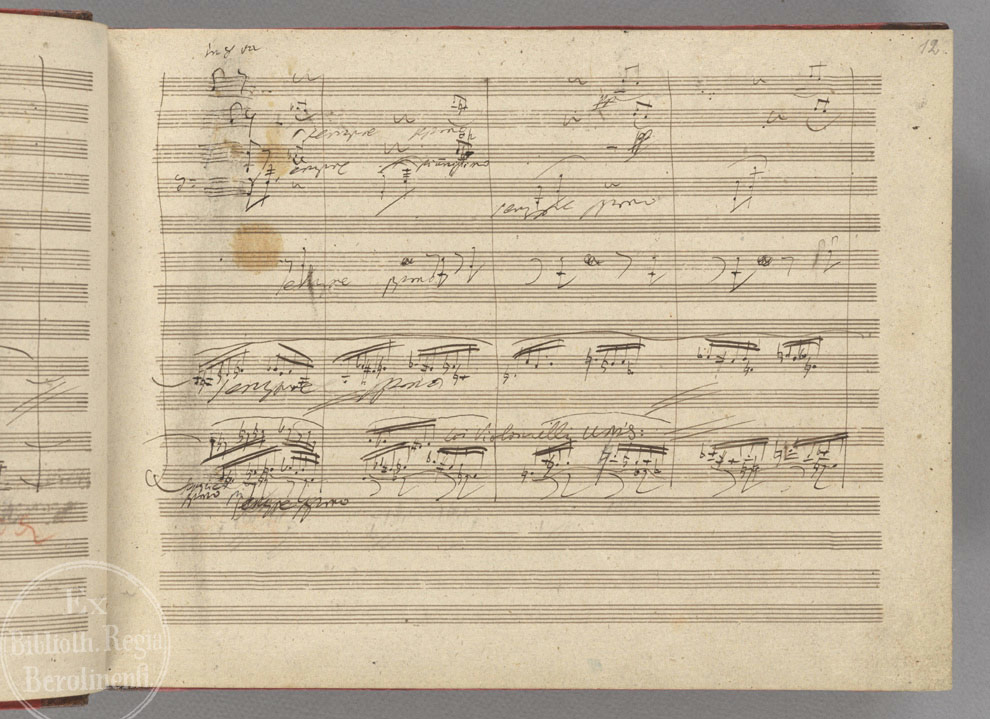 12.
in 8va
sempre piano
sempre pianissimo
sempre piano
sempre piano
sempre piano
coi Violoncelli
sempre piano
Ex
Biblioth. Regia
Berolinenſi